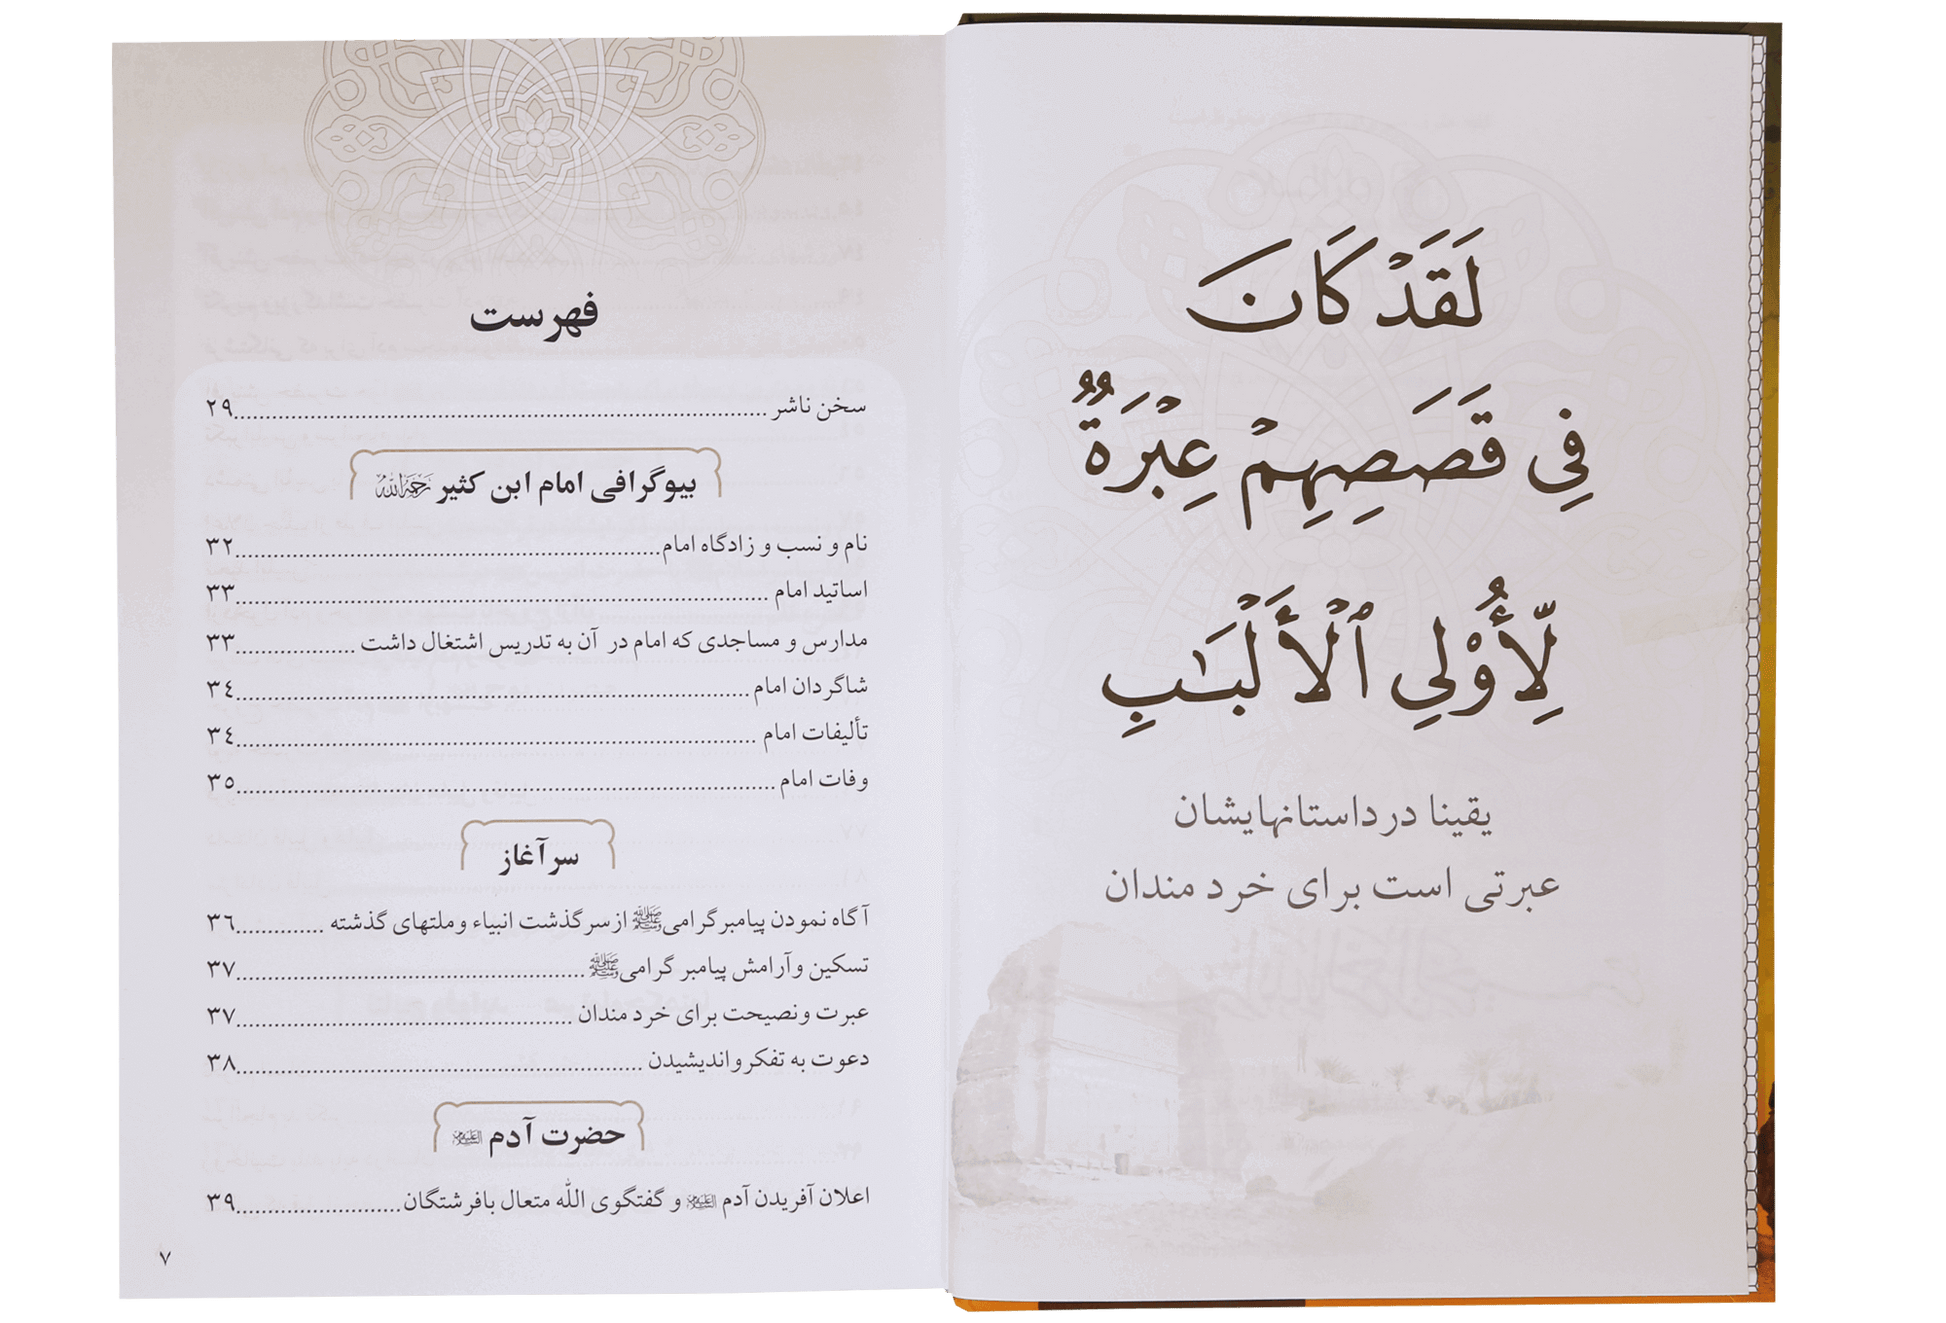 لَقَدْ كَانَ
فِي قَصَصِهِمْ عِبْرَةٌ
لِّأُوْلِي ٱلْأَلْبَٰبِ
یقینا در داستانهایشان
عبرتی است برای خرد مندان
فهرست
سخن ناشر ................ ٢٩
بیوگرافی امام ابن کثیر رَحِمَهُ اللهُ
نام و نسب و زادگاه امام ................ ٣٢
اساتید امام ................ ٣٣
مدارس و مساجدی که امام در آن به تدریس اشتغال داشت ................ ٣٣
شاگردان امام ................ ٣٤
تألیفات امام ................ ٣٤
وفات امام ................ ٣٥
سرآغاز
آگاه نمودن پیامبرگرامی ﷺ از سرگذشت انبیاء وملتهای گذشته ................ ٣٦
تسکین وآرامش پیامبر گرامی ﷺ ................ ٣٧
عبرت ونصیحت برای خرد مندان ................ ٣٧
دعوت به تفکر واندیشیدن ................ ٣٨
حضرت آدم علیه السلام
اعلان آفریدن آدم علیه السلام و گفتگوی الله متعال بافرشتگان ................ ٣٩
٧